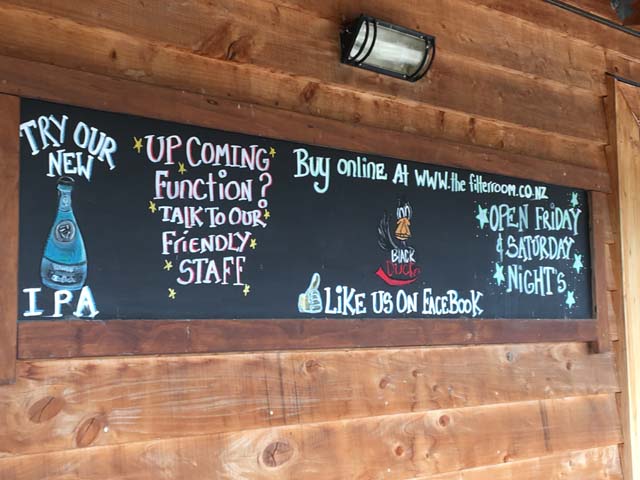 TRY OUR
NEW
IPA
UP COMING
FUNCTION?
TALK TO OUR
FRIENDLY
STAFF
Buy online At www.thefilterroom.co.nz
BLACK
DUCK
LIKE US ON FACEBOOK
OPEN FRIDAY
& SATURDAY
NIGHT'S